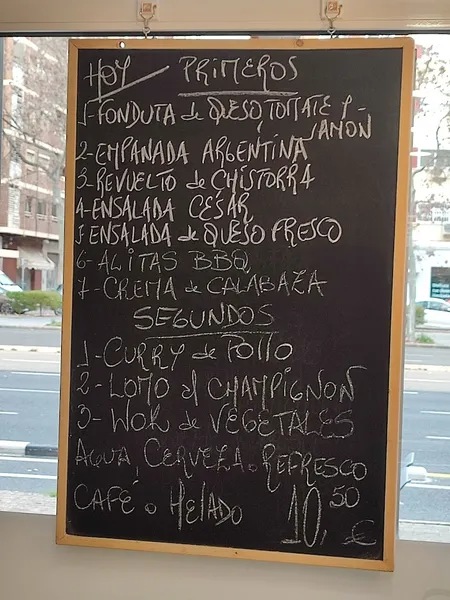 HOY PRIMEROS
1-FONDUTA de QUESO, TOMATE Y-
JAMON
2-EMPANADA ARGENTINA
3-REVUELTO de CHISTORRA
4-ENSALADA CÉSAR
5-ENSALADA de QUESO FRESCO
6-ALITAS BBQ
7-CREMA de CALABAZA
SEGUNDOS
1-CURRY de POLLO
2-LOMO al CHAMPIGNON
3-WOK de VEGETALES
AGUA, CERVEZA o REFRESCO
CAFÉ o HELADO 10,50 €